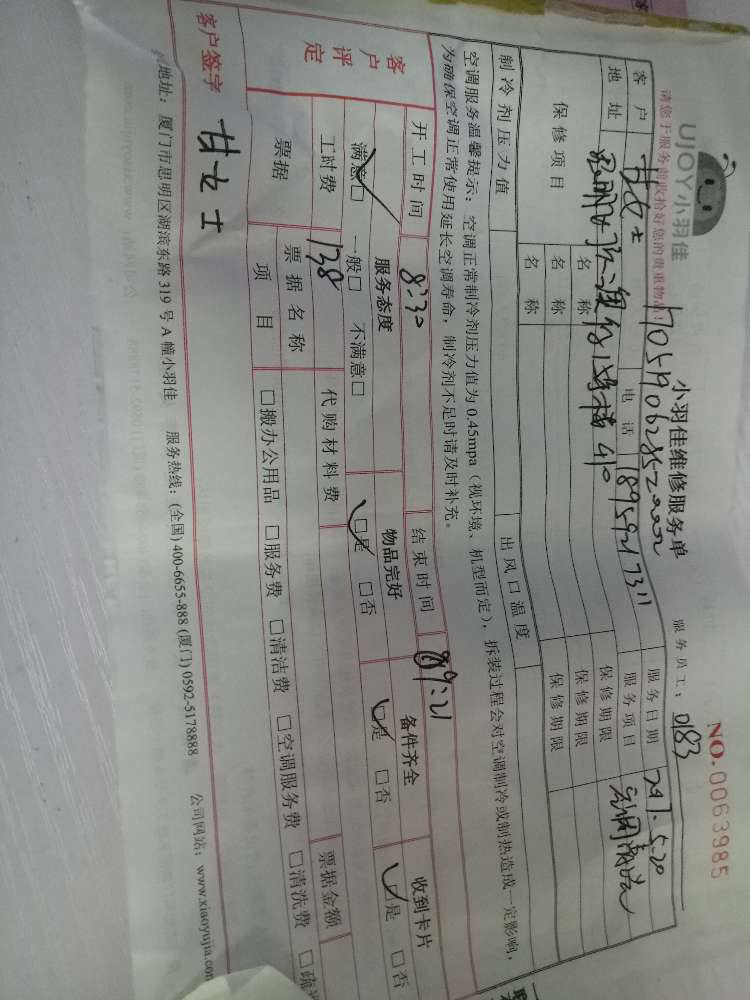 UJOY小羽佳
小羽佳维修服务单
NO.0063985
请您于服务前收拾好您的贵重物品！
服务员工：0183
客户 甘女士 电话 18959217311 服务日期 5.20
地址 服务项目 空调清洗
保修项目 名称 保修期限
名称 保修期限
名称 保修期限
制冷剂压力值 出风口温度
空调服务温馨提示：空调正常制冷剂压力值为0.45mpa（视环境、机型而定），拆装过程会对空调制冷或制热造成一定影响，
为确保空调正常使用延长空调寿命，制冷剂不足时请及时补充。
开工时间 8:30 结束时间 9:21
客户评定 服务态度 物品完好 备件齐全 收到卡片
满意□ 一般□ 不满意□ □是 □否 □是 □否 □是 □否
工时费 138 代购材料费 票据金额
票据 票据名称
项目 □搬办公用品 □服务费 □清洁费 □空调服务费 □清洗费
客户签字 甘女士
地址：厦门市思明区湖滨东路319号A幢小羽佳 服务热线：(全国) 400-6655-888 (厦门) 0592-5178888 公司网站：www.xiaoyujia.com